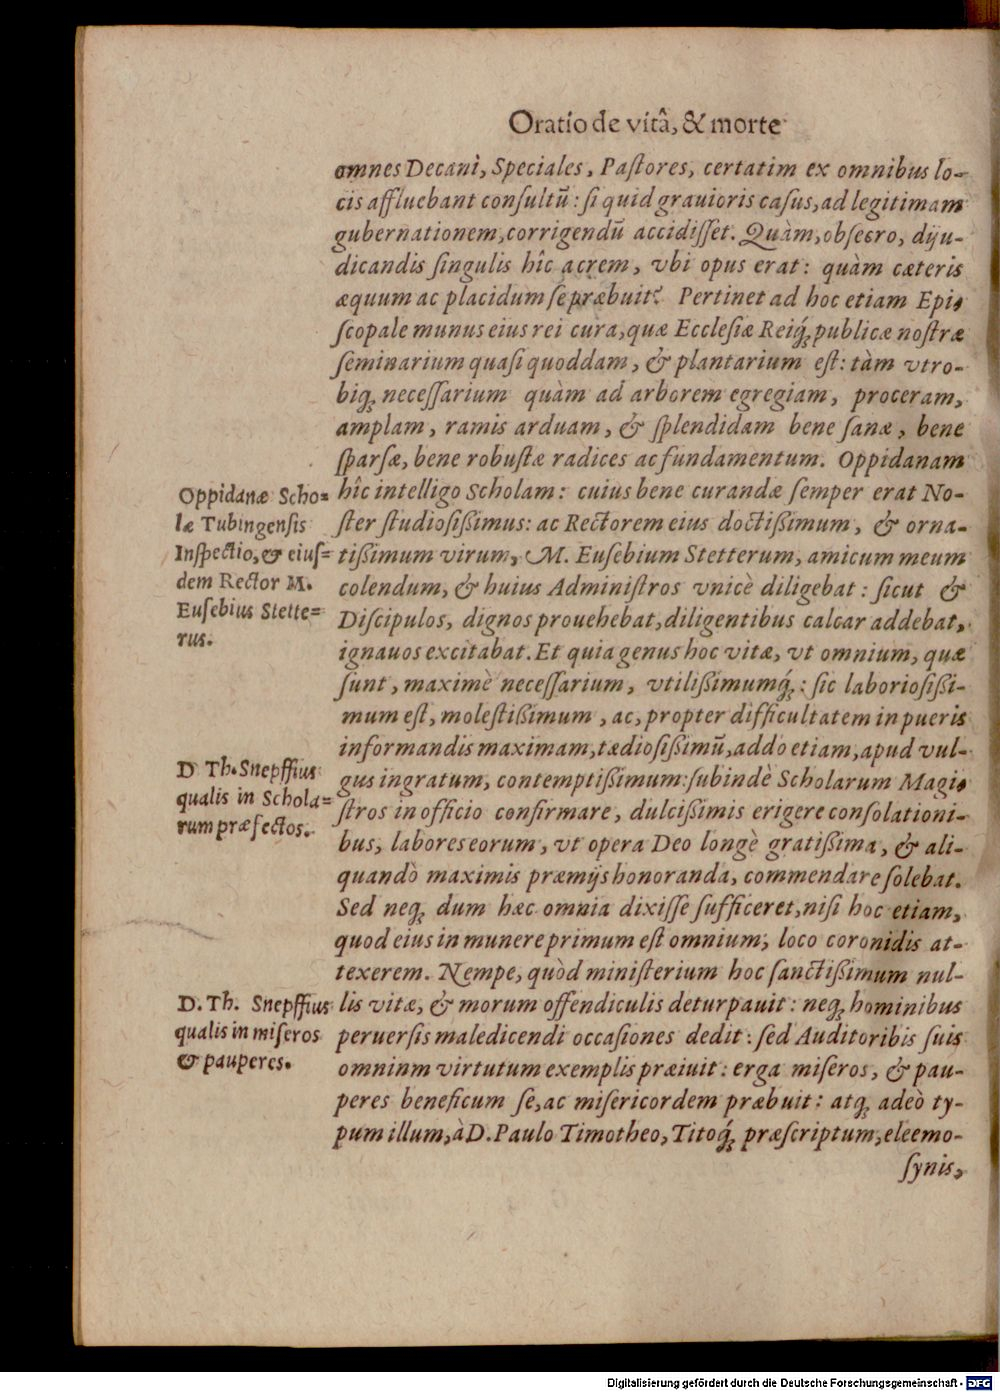 Oratio de vitâ, & morte
omnes Decani, Speciales, Paſtores, certatim ex omnibus lo-
cis affluebant conſultũ: ſi quid grauioris caſus, ad legitimam
gubernationem, corrigendũ accidiſſet. Quàm, obſecro, diju-
dicandis ſingulis hîc acrem, vbi opus erat: quàm cæteris
æquum ac placidum ſe præbuit? Pertinet ad hoc etiam Epi-
ſcopale munus eius rei cura, quæ Eccleſiæ Reiq́; publicæ noſtræ
ſeminarium quaſi quoddam, & plantarium eſt: tàm vtro-
biq; neceſſarium quàm ad arborem egregiam, proceram,
amplam, ramis arduam, & ſplendidam bene ſanæ, bene
ſparſæ, bene robuſtæ radices ac fundamentum. Oppidanam
hîc intelligo Scholam: cuius bene curandæ ſemper erat No-
ſter ſtudioſißimus: ac Rectorem eius doctißimum, & orna-
tißimum virum, M. Euſebium Stetterum, amicum meum
colendum, & huius Adminiſtros vnicè diligebat: ſicut &
Diſcipulos, dignos prouehebat, diligentibus calcar addebat,
ignauos excitabat. Et quia genus hoc vitæ, vt omnium, quæ
ſunt, maximè neceſſarium, vtilißimumq́;: ſic laborioſißi-
mum eſt, moleſtißimum, ac, propter difficultatem in pueris
informandis maximam, tædioſißimũ, addo etiam, apud vul-
gus ingratum, contemptißimum: ſubindè Scholarum Magi-
ſtros in officio confirmare, dulcißimis erigere conſolationi-
bus, labores eorum, vt opera Deo longè gratißima, & ali-
quandò maximis præmijs honoranda, commendare ſolebat.
Sed neq; dum hæc omnia dixiſſe ſufficeret, niſi hoc etiam,
quod eius in munere primum eſt omnium, loco coronidis at-
texerem. Nempe, quòd miniſterium hoc ſanctißimum nul-
lis vitæ, & morum offendiculis deturpauit: neq; hominibus
peruerſis maledicendi occaſiones dedit: ſed Auditoribis ſuis
omninm virtutum exemplis præiuit: erga miſeros, & pau-
peres beneficum ſe, ac miſericordem præbuit: atq; adeò ty-
pum illum, à D. Paulo Timotheo, Titoq́; præſcriptum, eleemo-
ſynis,
Oppidanæ Scho-
læ Tubingenſis
Inſpectio, & eiuſ-
dem Rector M.
Euſebius Stette-
rus.
D Th. Snepffius
qualis in Schola-
rum præfectos.
D. Th. Snepffius
qualis in miſeros
& pauperes.
Digitalisierung gefördert durch die Deutsche Forschungsgemeinschaft - DFG